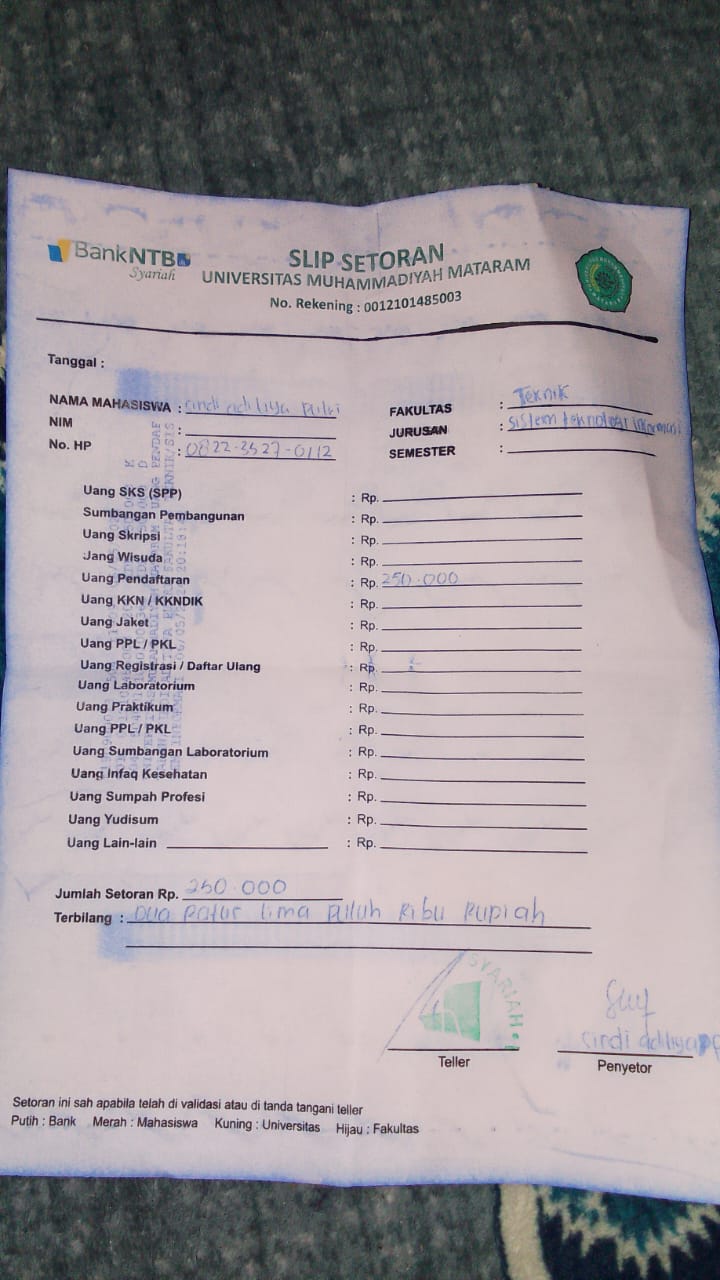 BankNTB
Syariah
SLIP SETORAN
UNIVERSITAS MUHAMMADIYAH MATARAM
No. Rekening : 0012101485003
Tanggal :
NAMA MAHASISWA : cindi adiliya putri
NIM :
No. HP : 0822-3527-0112
FAKULTAS : Teknik
JURUSAN : sistem teknologi informasi
SEMESTER :
Uang SKS (SPP) : Rp.
Sumbangan Pembangunan : Rp.
Uang Skripsi : Rp.
Uang Wisuda : Rp.
Uang Pendaftaran : Rp. 250.000
Uang KKN / KKNDIK : Rp.
Uang Jaket : Rp.
Uang PPL / PKL : Rp.
Uang Registrasi / Daftar Ulang : Rp.
Uang Laboratorium : Rp.
Uang Praktikum : Rp.
Uang PPL / PKL : Rp.
Uang Sumbangan Laboratorium : Rp.
Uang Infaq Kesehatan : Rp.
Uang Sumpah Profesi : Rp.
Uang Yudisum : Rp.
Uang Lain-lain : Rp.
Jumlah Setoran Rp. 250.000
Terbilang : Dua Ratur lima puluh Ribu Rupiah
SYARIAH
cindi adiliya
Teller
Penyetor
Setoran ini sah apabila telah di validasi atau di tanda tangani teller
Putih : Bank Merah : Mahasiswa Kuning : Universitas Hijau : Fakultas